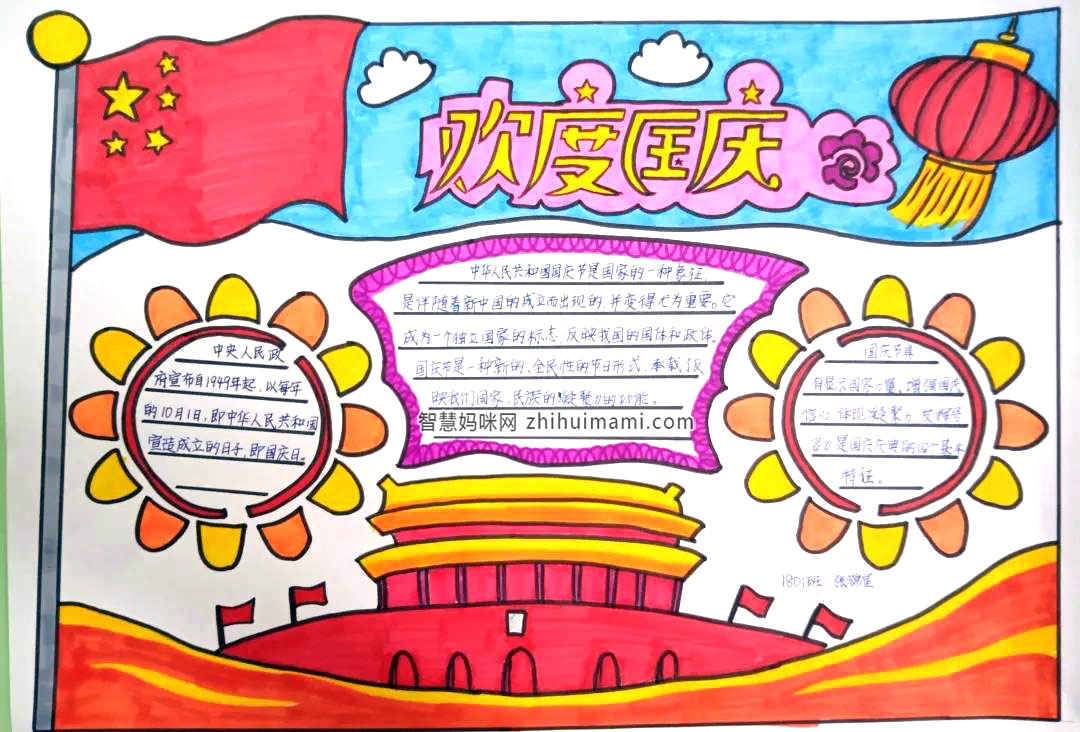 欢度国庆
中华人民共和国国庆节是国家的一种象征,
是伴随着新中国的成立而出现的,并变得尤为重要。它
成为一个独立国家的标志,反映我国的国体和政体。
国庆节是一种新的、全民性的节日形式,承载了反
映我们国家、民族的凝聚力的功能。
智慧妈咪网 zhihuimami.com
中央人民政
府宣布自1949年起,以每年
的10月1日,即中华人民共和国
宣造成立的日子,即国庆日。
国庆节具
有显示国家力量、增强国民
信心,体现凝聚力,发挥号
召力是国庆庆典的四个基本
特征。
1801班 张